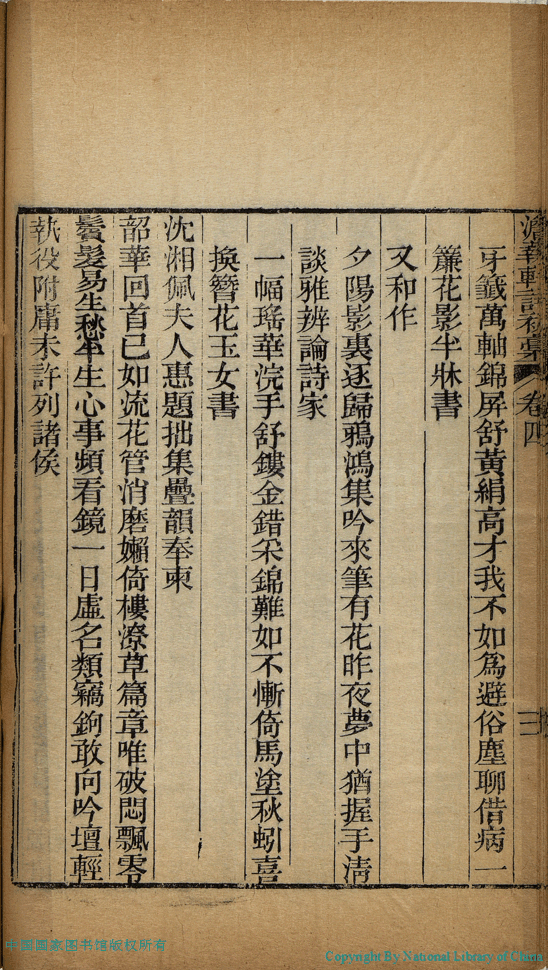 澹華軒詩初稾 卷四 三
牙籤萬軸錦屏舒黃絹高才我不如為避俗塵聊借病一
簾花影半牀書
又和作
夕陽影裏逐歸鴉鴻集吟來筆有花昨夜夢中猶握手淸
談雅辨論詩家
一幅瑤華浣手舒鏤金錯采錦難如不慚倚馬塗秋蚓喜
換簪花玉女書
沈湘佩夫人惠題拙集疊韻奉柬
韶華回首已如流花管消磨嬾倚樓潦草篇章唯破悶飄零
鬢髮易生愁半生心事頻看鏡一日虛名類竊鉤敢向吟壇輕
執役附庸未許列諸侯
中国国家图书馆版权所有
Copyright By National Library of China